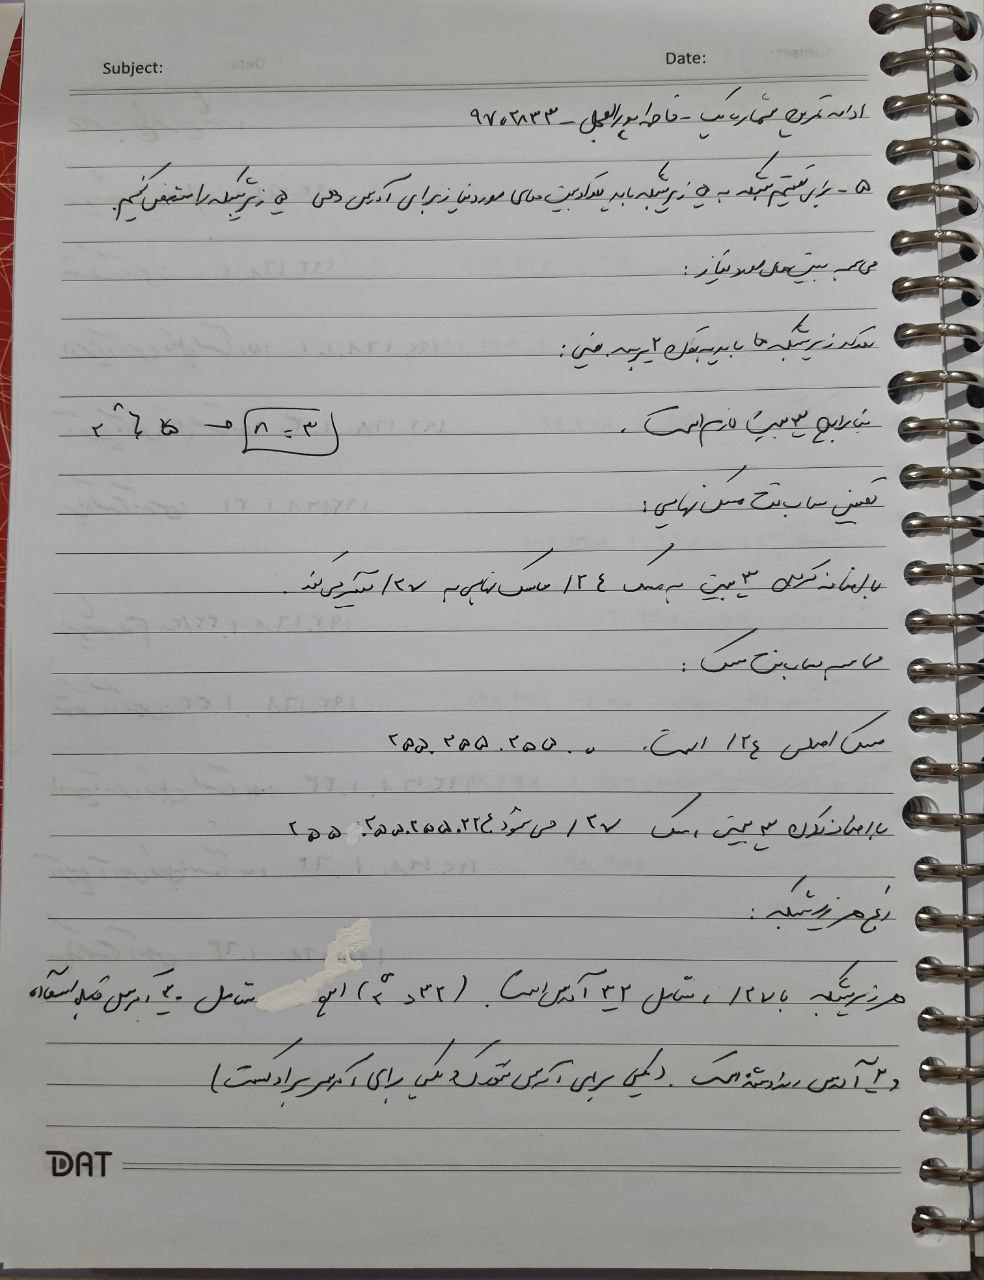 Subject: Date:
ادامه تمرین شماره یک - فاطمه ابوالعجل - ۹۷۰۲۸۳۳
۵ - برای تقسیم شبکه به ۵ زیرشبکه باید تعداد بیت های مورد نیاز برای آدرس دهی ۵ زیرشبکه را مشخص کنیم.
محاسبه بیت های مورد نیاز:
تعداد زیرشبکه ها باید به توان ۲ برسد. یعنی:
بنابراین ۳ بیت لازم است. ۲ⁿ ≥ ۵ → n = ۳
تعیین ساب نت مسک نهایی:
با اضافه کردن ۳ بیت به مسک /۲۴ ماسک نهایی به /۲۷ تغییر می کند.
محاسبه ساب نت مسک:
مسک اصلی /۲۴ است. ۲۵۵.۲۵۵.۲۵۵.۰
با اضافه کردن ۳ بیت، مسک /۲۷ می شود ۲۵۵.۲۵۵.۲۵۵.۲۲۴
رنج هر زیرشبکه:
هر زیرشبکه با /۲۷، شامل ۳۲ آدرس است. (۲⁵ = ۳۲) شامل ۳۰ آدرس قابل استفاده
و ۲ آدرس رزرو شده است. (یکی برای آدرس شبکه و یکی برای آدرس برادکست)
DAT